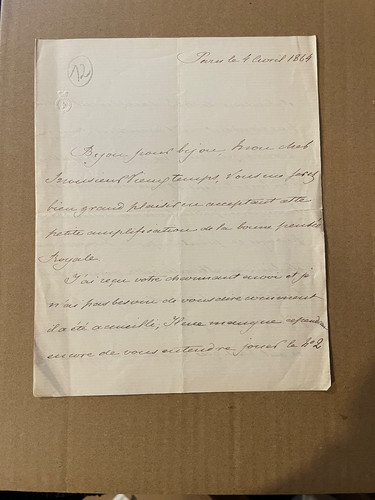 12
Paris le 4 Avril 1864
Bijou pour bijou, Mon cher
Monsieur Vieuxtemps, Vous me ferez
bien grand plaisir en acceptant cette
petite amplification de la bonne pensée
Royale
J'ai reçu votre charmant envoi et je
n'ai pas besoin de vous dire comment
il a été accueilli; Il me manque cependant
encore de vous entendre jouer le No 2